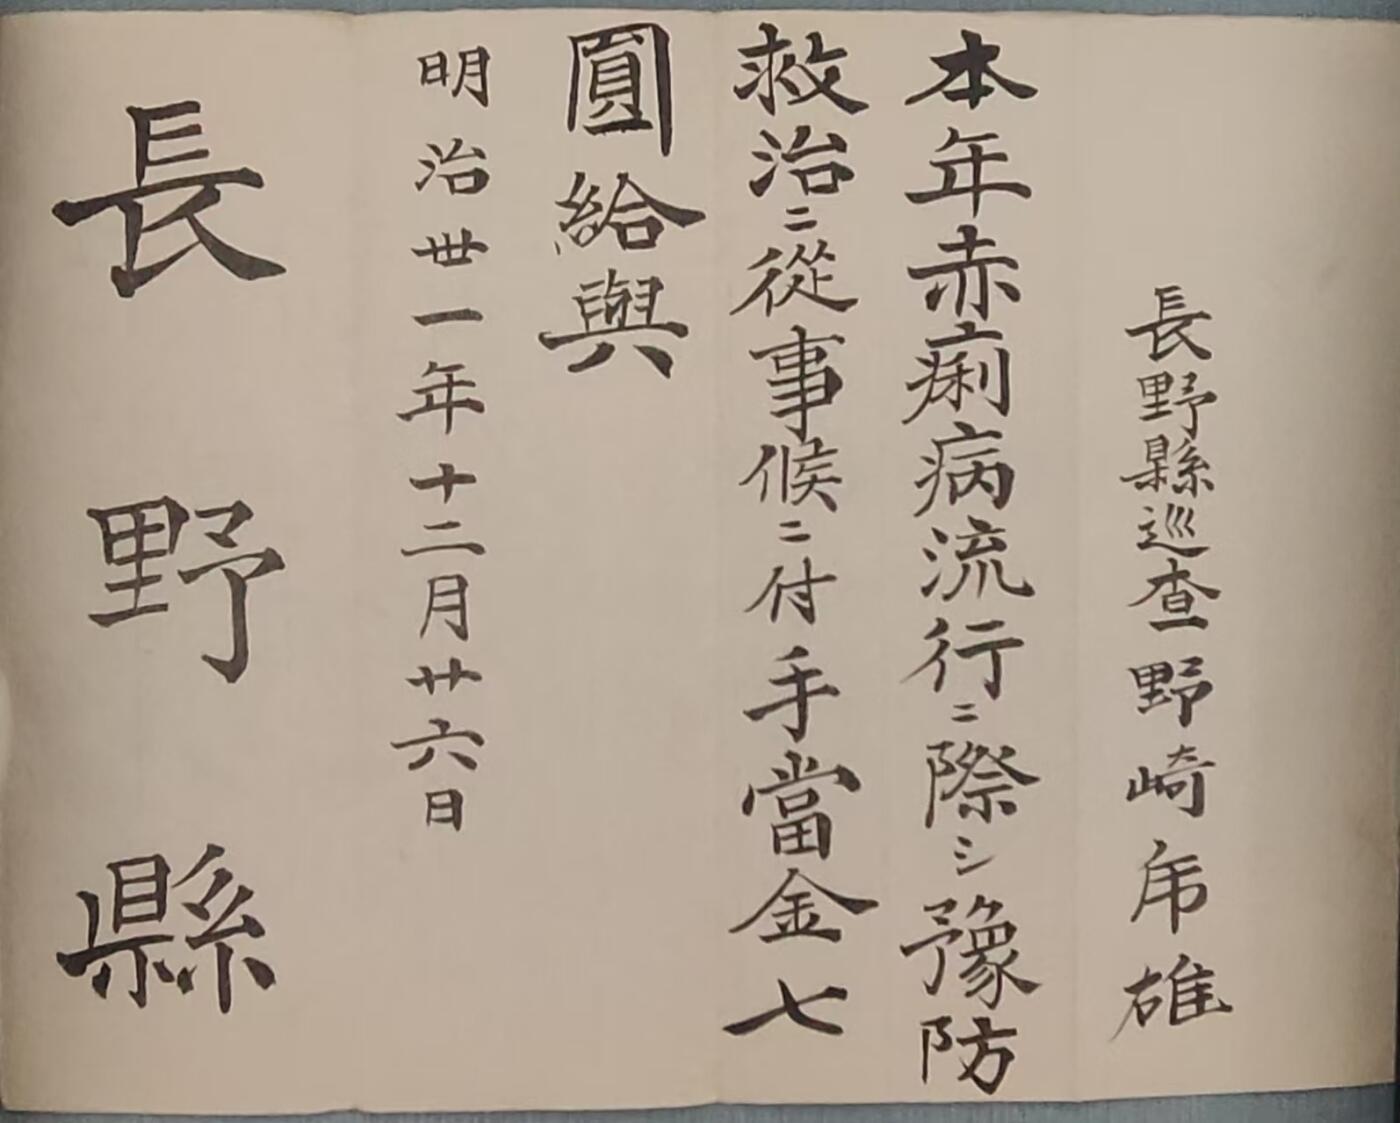 長野縣巡査野崎乕雄
本年赤痢病流行ニ際シ豫防
救治ニ從事候ニ付手當金七
圓給與
明治丗一年十二月廿六日
長野縣